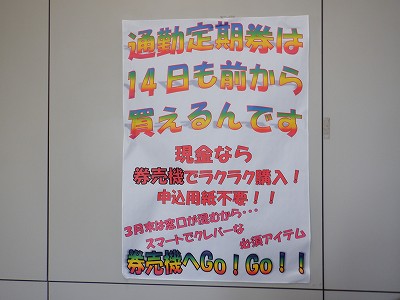 通勤定期券は
14日も前から
買えるんです
現金なら
券売機でラクラク購入！
申込用紙不要！！
３月末は窓口が混むから・・・
スマートでクレバーな
必須アイテム
券売機へGo！Go！！